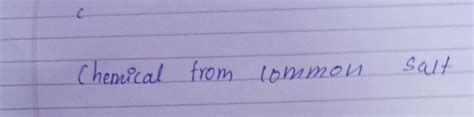 c
Chemical from common salt